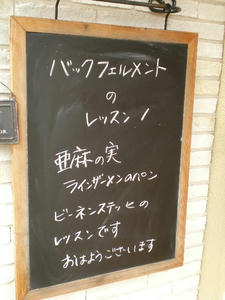 バックフェルメント
の
レッスン！
亜麻の実
ラインザーメンのパン
ビーネンスティッヒの
レッスンです
おはようございます